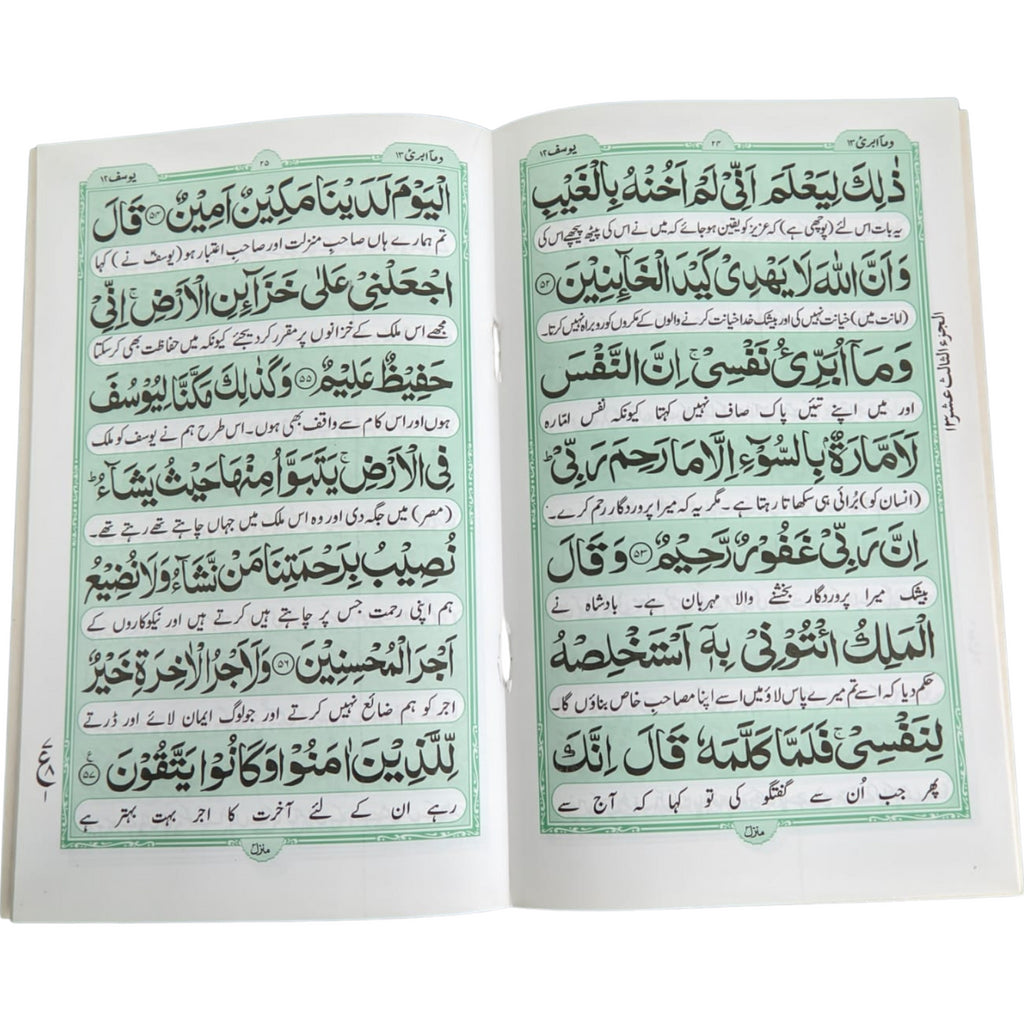 وما ابرئ ۱۳
۲۴
یوسف ۱۲
ذٰلِكَ لِيَعْلَمَ اَنِّيْ لَمْ اَخُنْهُ بِالْغَيْبِ
یہ بات اس لئے (پوچھی ہے) کہ عزیز کو یقین ہو جائے کہ میں نے اس کی پیٹھ پیچھے اس کی
وَاَنَّ اللّٰهَ لَا يَهْدِيْ كَيْدَ الْخَآئِنِيْنَ ۵۲
(امانت میں) خیانت نہیں کی اور بیشک خدا خیانت کرنے والوں کے مکروں کو روبراہ نہیں کرتا۔
وَمَاۤ اُبَرِّئُ نَفْسِيْ ۚ اِنَّ النَّفْسَ
اور میں اپنے تئیں پاک صاف نہیں کہتا کیونکہ نفس امّارہ
لَاَمَّارَةٌۢ بِالسُّوْٓءِ اِلَّا مَا رَحِمَ رَبِّيْ ؕ
(انسان کو) بُرائی ہی سکھاتا رہتا ہے۔ مگر یہ کہ میرا پروردگار رحم کرے۔
اِنَّ رَبِّيْ غَفُوْرٌ رَّحِيْمٌ ۵۳ وَقَالَ
بیشک میرا پروردگار بخشنے والا مہربان ہے۔ بادشاہ نے
الْمَلِكُ ائْتُوْنِيْ بِهٖۤ اَسْتَخْلِصْهُ
حکم دیا کہ اسے تم میرے پاس لاؤ میں اسے اپنا مصاحبِ خاص بناؤں گا۔
لِنَفْسِيْ ۚ فَلَمَّا كَلَّمَهٗ قَالَ اِنَّكَ
پھر جب اُن سے گفتگو کی تو کہا کہ آج سے
منزل
الجزء الثالث عشر ۱۳
وما ابرئ ۱۳
۲۵
یوسف ۱۲
الْيَوْمَ لَدَيْنَا مَكِيْنٌ اَمِيْنٌ ۵۴ قَالَ
تم ہمارے ہاں صاحبِ منزلت اور صاحبِ اعتبار ہو (یوسفؑ نے) کہا
اجْعَلْنِيْ عَلٰى خَزَآئِنِ الْاَرْضِ ۚ اِنِّيْ
مجھے اس ملک کے خزانوں پر مقرر کر دیجئے کیونکہ میں حفاظت بھی کر سکتا
حَفِيْظٌ عَلِيْمٌ ۵۵ وَكَذٰلِكَ مَكَّنَّا لِيُوْسُفَ
ہوں اور اس کام سے واقف بھی ہوں۔ اس طرح ہم نے یوسف کو ملک
فِي الْاَرْضِ ۚ يَتَبَوَّاُ مِنْهَا حَيْثُ يَشَآءُ ؕ
(مصر) میں جگہ دی اور وہ اس ملک میں جہاں چاہتے تھے رہتے تھے۔
نُصِيْبُ بِرَحْمَتِنَا مَنْ نَّشَآءُ وَلَا نُضِيْعُ
ہم اپنی رحمت جس پر چاہتے ہیں کرتے ہیں اور نیکوکاروں کے
اَجْرَ الْمُحْسِنِيْنَ ۵۶ وَلَاَجْرُ الْاٰخِرَةِ خَيْرٌ
اجر کو ہم ضائع نہیں کرتے اور جو لوگ ایمان لائے اور ڈرتے
لِّلَّذِيْنَ اٰمَنُوْا وَكَانُوْا يَتَّقُوْنَ ۵۷ ع
رہے ان کے لئے آخرت کا اجر بہت بہتر ہے
منزل